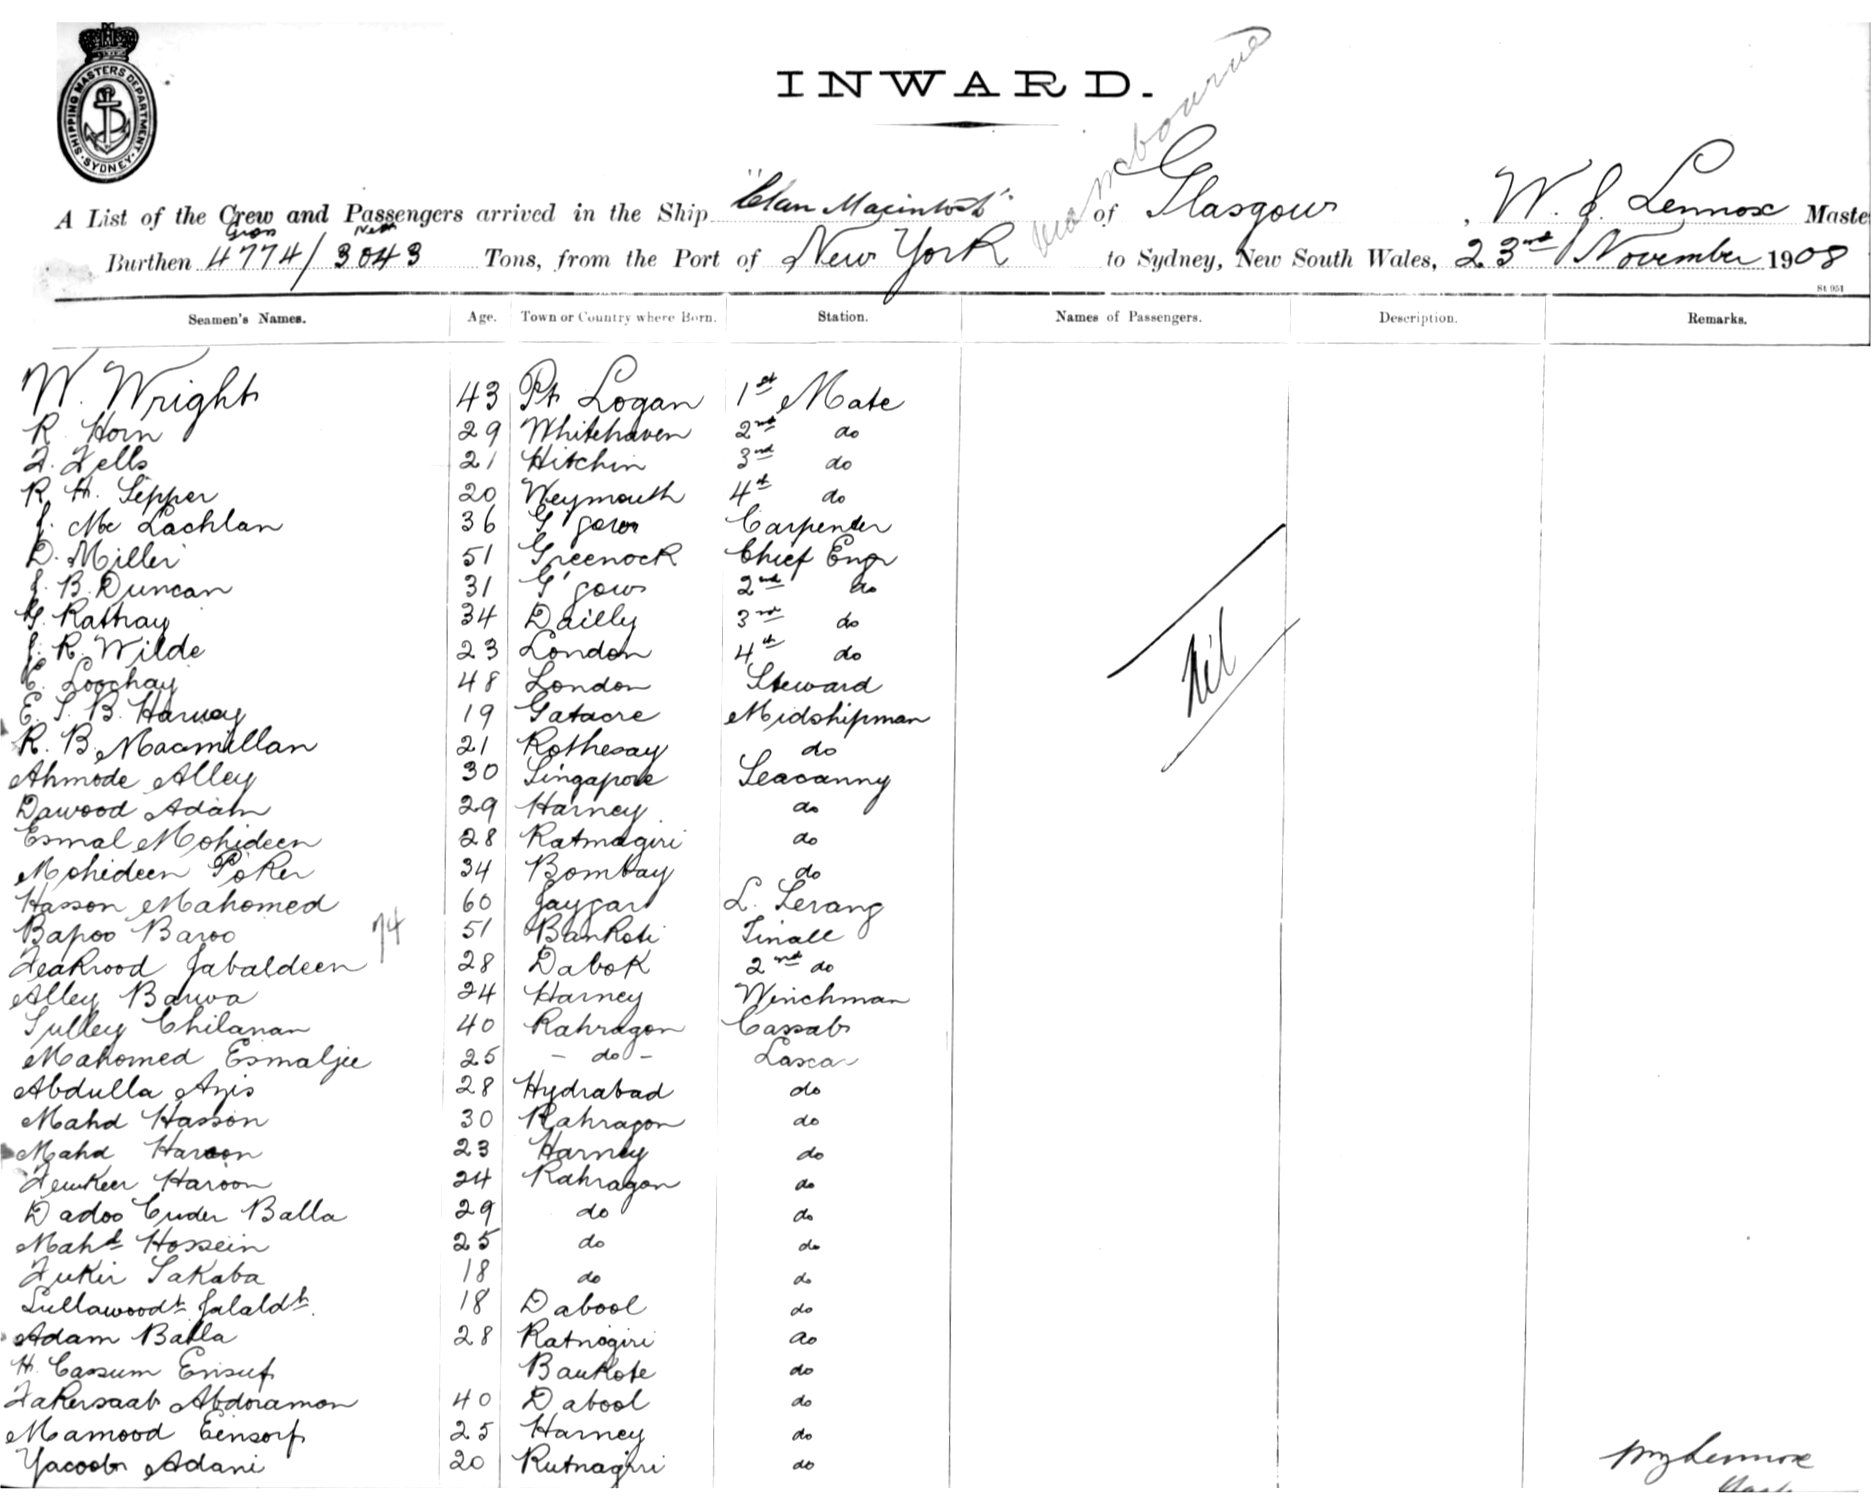 SHIPPING MASTERS DEPARTMENT. SYDNEY.
INWARD.
via Melbourne
A List of the Crew and Passengers arrived in the Ship "Clan Macintosh" of Glasgow, W. J. Lennox Maste
Gross Nett
Burthen 4774/3043 Tons, from the Port of New York to Sydney, New South Wales, 23rd November 1908
St 951
Seamen's Names. Age. Town or Country where Born. Station. Names of Passengers. Description. Remarks.
W. Wright 43 Pt Logan 1st Mate
R. Horn 29 Whitehaven 2nd do
F. Fells 21 Hitchin 3rd do
R. H. Sepper 20 Weymouth 4th do
J. Mc Lachlan 36 G'gow Carpenter
D. Miller 51 Greenock Chief Engr
J. B. Duncan 31 G'gow 2nd do
G. Rattray 34 Dailly 3rd do
J. R. Wilde 23 London 4th do
E. Loochay 48 London Steward
E. S. B. Harvey 19 Gatacre Midshipman
R. B. Macmillan 21 Rothesay do
Nil
Ahmode Alley 30 Singapore Seacanny
Dawood Adam 29 Harney do
Esmal Mohideen 28 Ratnagiri do
Mohideen Poker 34 Bombay do
Hasson Mahomed 60 Jaygar L. Serang
Bapoo Baroo 74 51 Bankoti Tinall
Feakrood Jabaldeen 28 Dabok 2nd do
Alley Bawa 24 Harney Winchman
Sulley Chilanan 40 Rahragon Cassab
Mahomed Esmaljee 25 - do - Lascar
Abdulla Azis 28 Hydrabad do
Mahd Hasson 30 Rahragon do
Mahd Haroon 23 Harney do
Fewkeer Haroon 24 Rahragon do
Dadoo Cuder Balla 29 do do
Mahd Hossein 25 do do
Fukir Sakaba 18 do do
Sullawoodt Jalaldt. 18 Dabool do
Adam Balla 28 Ratnogiri do
H. Cassum Eusuf Baukote do
Fakersaab Abdoramon 40 Dabool do
Mamood Eensorf 25 Harney do
Yacoob Adani 20 Rutnagiri do
Wm J Lennox